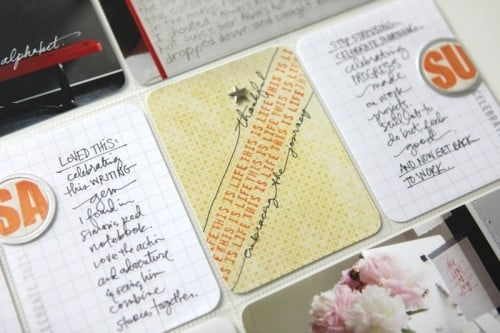 alphabet.
dropped down and caught
LOVED THIS:
celebrating
this WRITING
gem
I found in
simon's red
notebook.
Love the action
and adventure
& seeing him
combine
stories together.
SA
thankful
THIS IS LIFE THIS IS LIFE THIS IS LIFE
embracing the journey
STOP STRESSING.
CELEBRATE SOMETHING.
celebrating
PROGRESS
made
on work
projects.
still lots to
do but feels
good.
AND NOW GET BACK
TO WORK.
SU